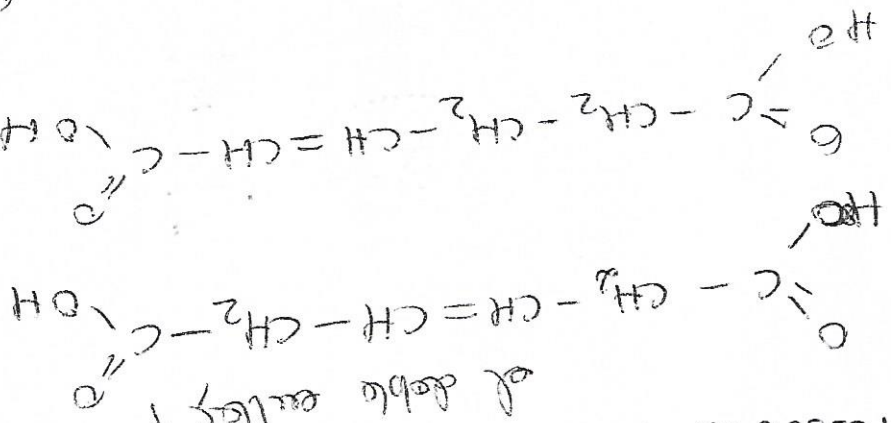 el doble enlace
O O
C - CH2 - CH = CH - CH2 - C
HO OH
O O
C - CH2 - CH2 - CH = CH - C
HO OH